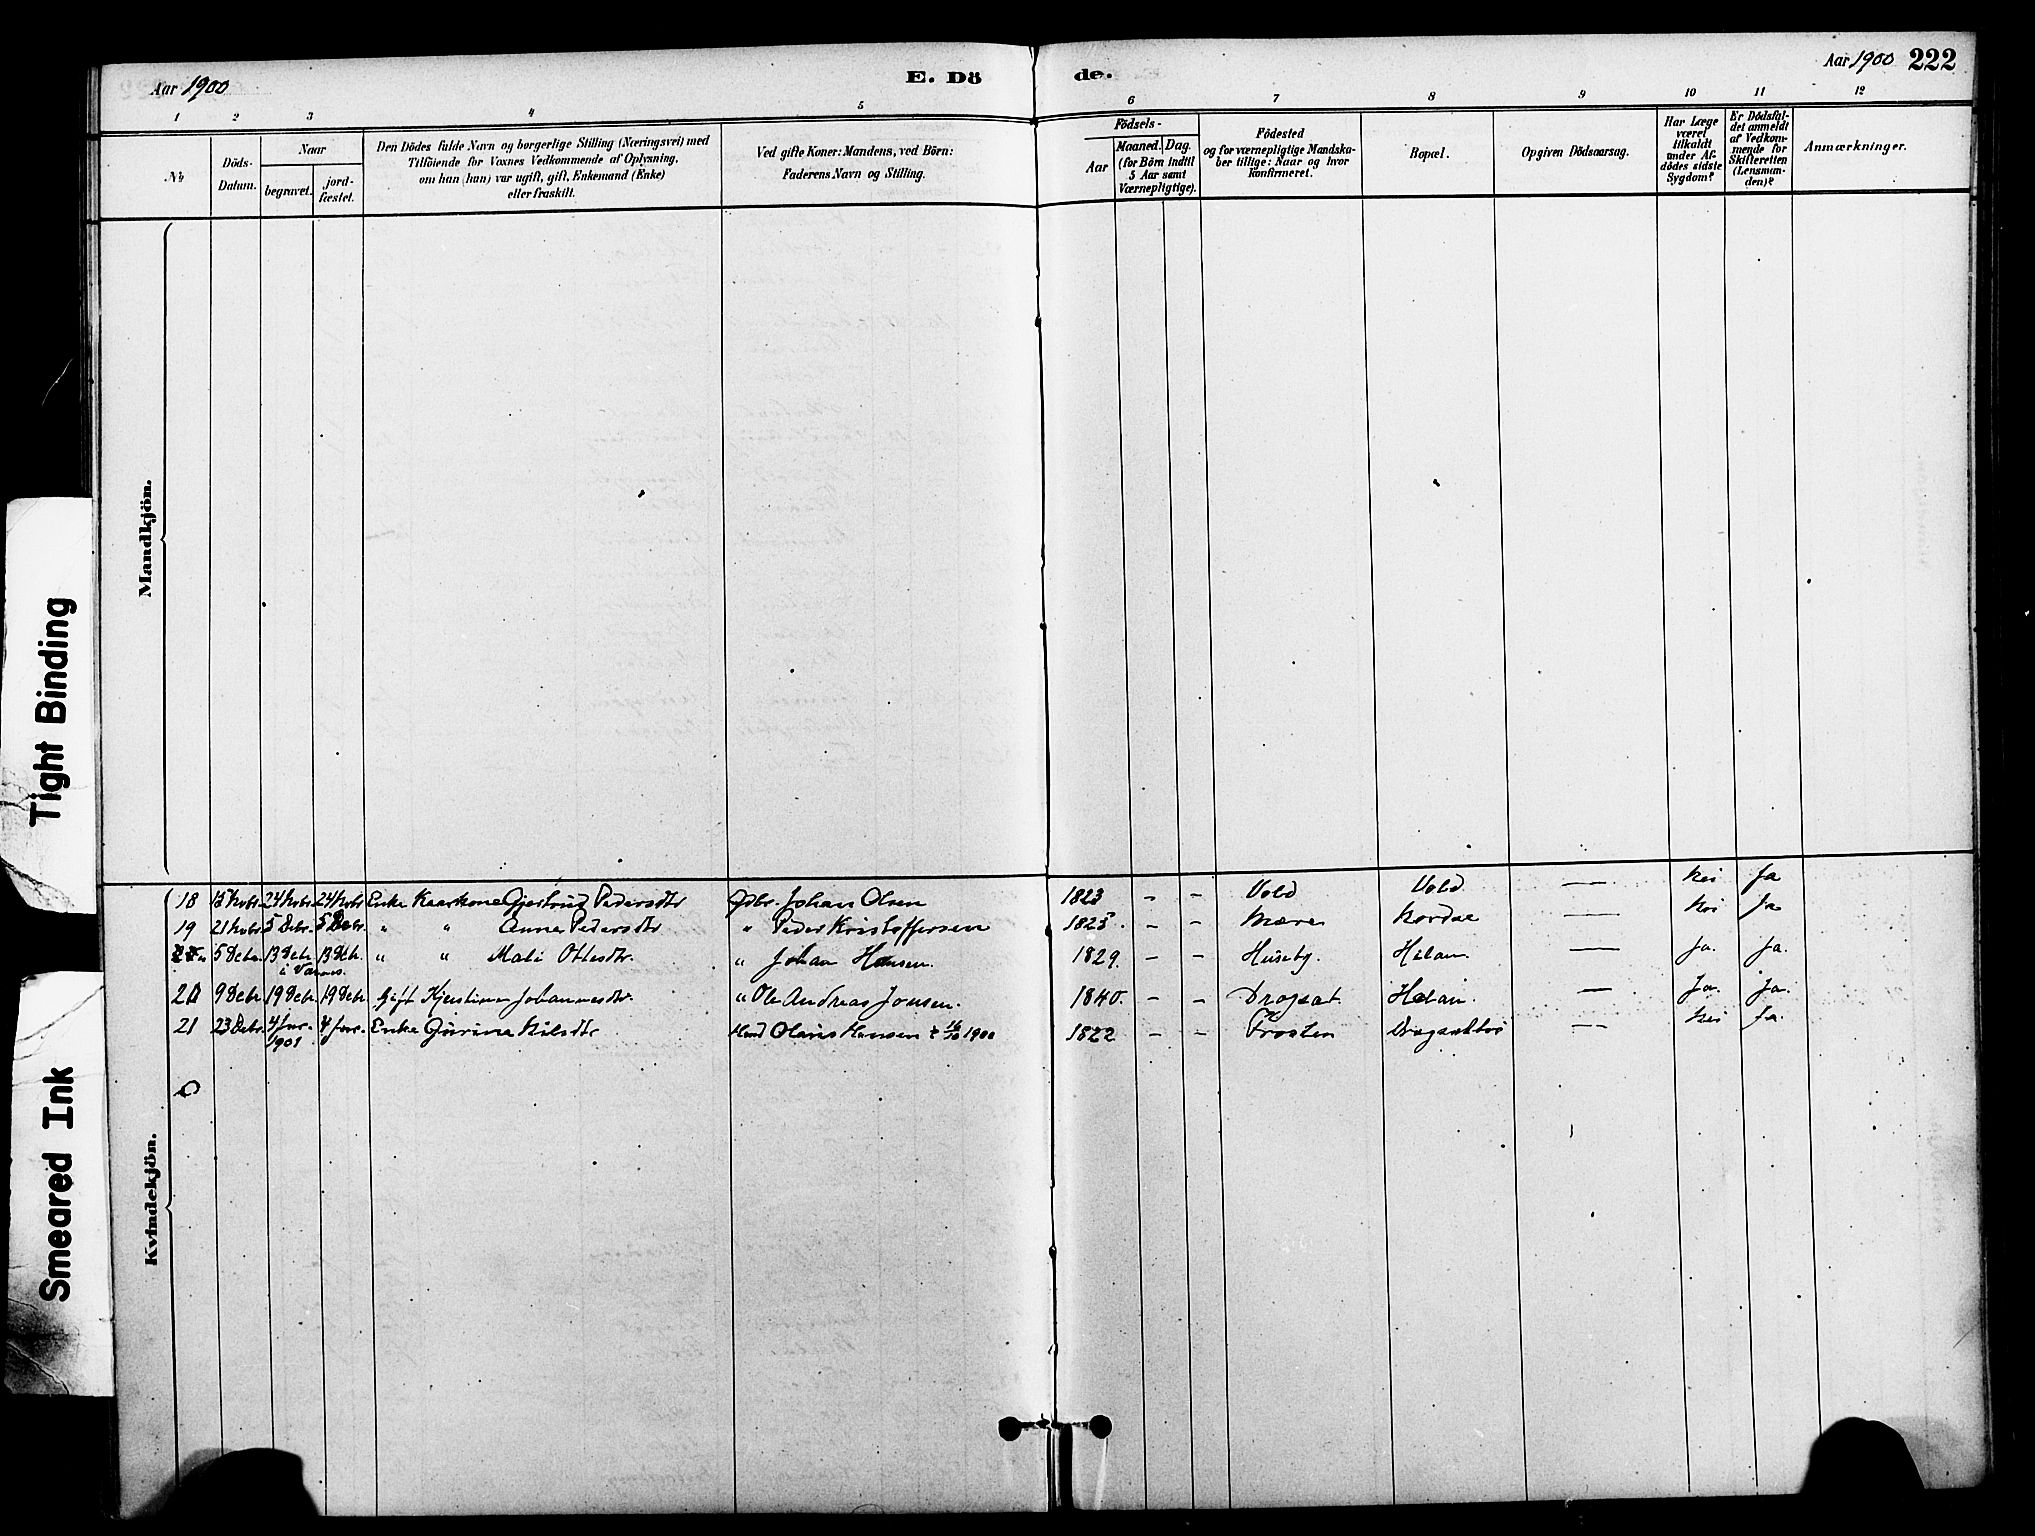 Aar 1900
E. Dö de.
Aar 1900 222
1 2 3 4 5 6 7 8 9 10 11 12
No
Döds-Datum.
Naar
begravet.
jord-fæstet.
Den Dödes fulde Navn og borgerlige Stilling (Næringsvei) med
Tilföiende for Voxnes Vedkommende af Oplysning,
om han (hun) var ugift, gift, Enkemand (Enke)
eller fraskilt.
Ved gifte Koner: Mandens, ved Börn:
Faderens Navn og Stilling.
Födsels-
Aar
Maaned. Dag.
(for Börn indtil
5 Aar samt
Værnepligtige).
Födested
og for værnepligtige Mandska-
ber tillige: Naar og hvor
konfirmeret.
Bopæl.
Opgiven Dödsaarsag.
Har Læge
været
tilkaldt
under Af-
dödes sidste
Sygdom?
Er Dödsfal-
det anmeldt
af Vedkom-
mende for
Skifteretten
(Lensman-
den)?
Anmærkninger.
Mandkjön.
Tight Binding
18 15 Novbr. 24 Novbr. 24 Novbr. Enke Kaarkone Gjertrud Pedersdtr Gdbr. Johan Olsen 1823 - - Vold Vold — Nei Ja
19 21 Novbr. 5 Debr. 5 Debr. " " Anna Pedersdtr " Peder Kristoffersen 1825. - - Mære Nordae — Nei Ja
5 Debr. 13 Debr. 13 Debr. " " Mali Ottesdtr. " Johan Hansen. 1829. - - Huseby. — Ja. Ja.
20 9 Debr. 19 Debr. 19 Debr. Gift Kjerstina Johannesdtr. " Ole Andreas Jonsen. 1840. - - — Ja. Ja.
21 23 Debr. 4 Janr. 4 Janr. Enke Nilsdtr Olaus Hansen 1900 1822 - - Frosten — Nei Ja.
1901
Kvindekjön.
Smeared Ink